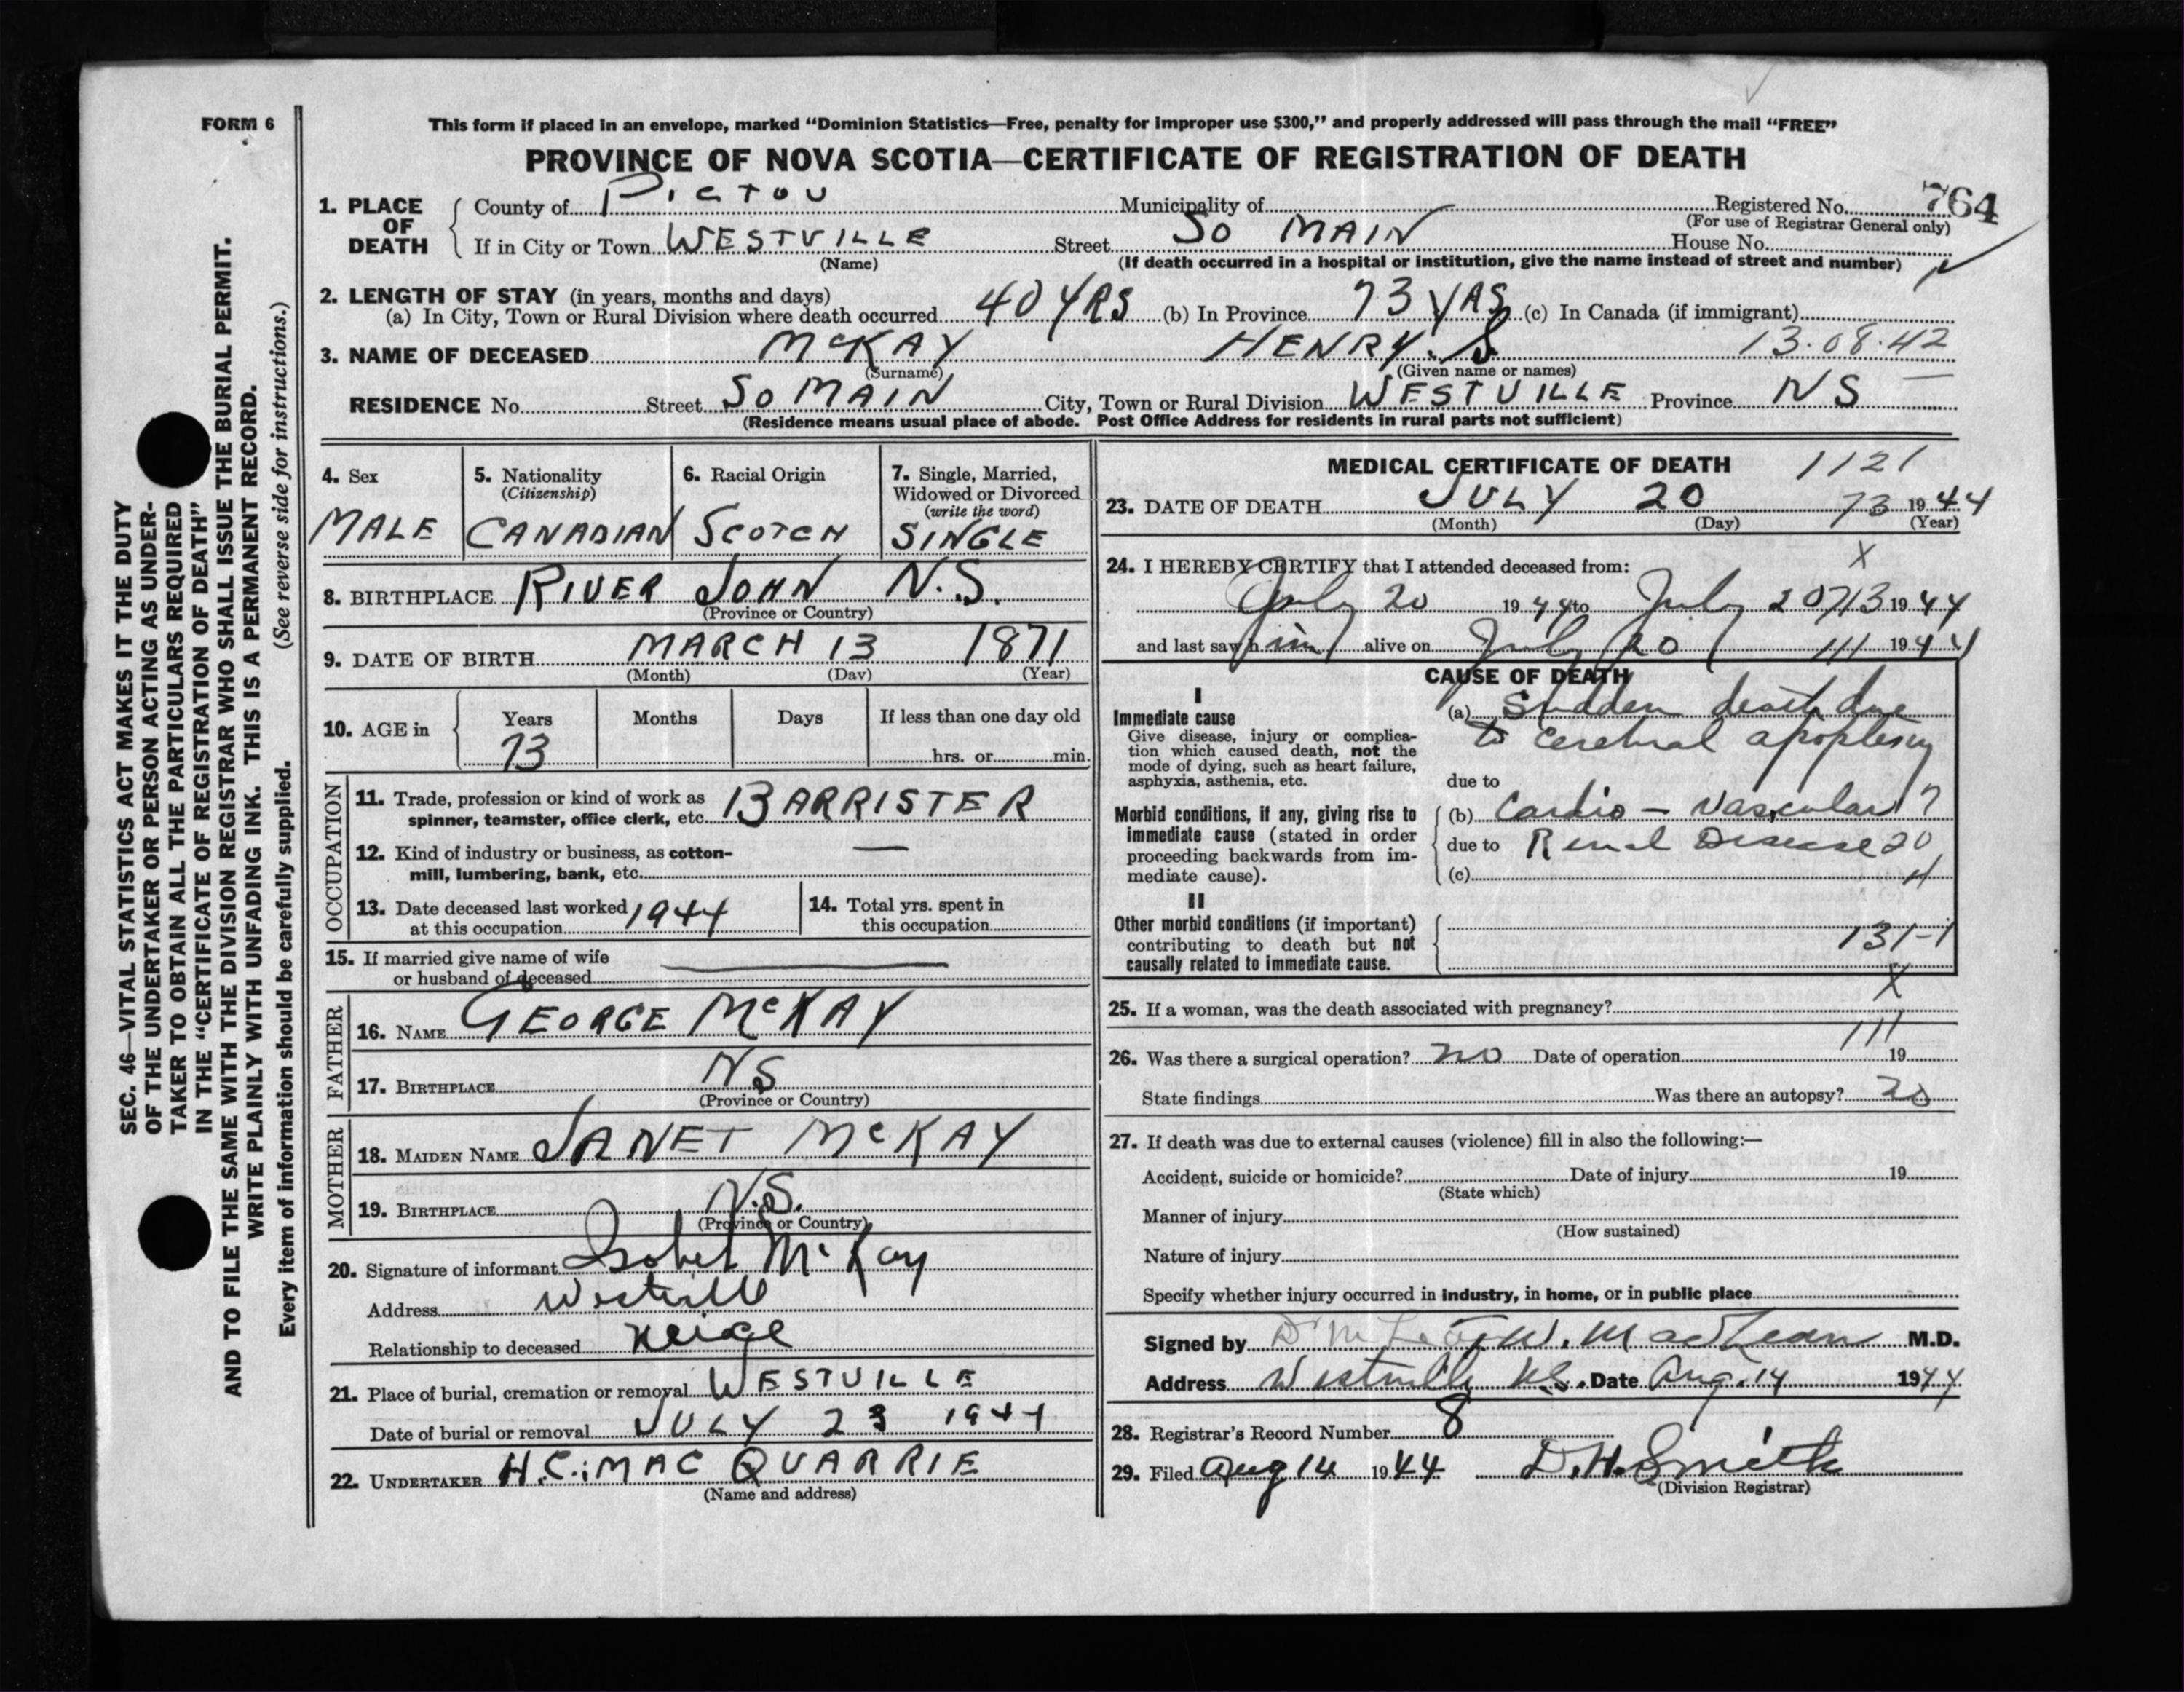 FORM 6
This form if placed in an envelope, marked "Dominion Statistics—Free, penalty for improper use $300," and properly addressed will pass through the mail "FREE"
PROVINCE OF NOVA SCOTIA—CERTIFICATE OF REGISTRATION OF DEATH
SEC. 46—VITAL STATISTICS ACT MAKES IT THE DUTY
OF THE UNDERTAKER OR PERSON ACTING AS UNDER-
TAKER TO OBTAIN ALL THE PARTICULARS REQUIRED
IN THE "CERTIFICATE OF REGISTRATION OF DEATH"
AND TO FILE THE SAME WITH THE DIVISION REGISTRAR WHO SHALL ISSUE THE BURIAL PERMIT.
WRITE PLAINLY WITH UNFADING INK. THIS IS A PERMANENT RECORD.
(See reverse side for instructions.)
Every item of information should be carefully supplied.
1. PLACE OF DEATH
County of PICTOU Municipality of Registered No. 764
(For use of Registrar General only)
If in City or Town WESTVILLE Street SO MAIN House No.
(Name) (If death occurred in a hospital or institution, give the name instead of street and number)
2. LENGTH OF STAY (in years, months and days)
(a) In City, Town or Rural Division where death occurred 40 YRS (b) In Province 73 YRS (c) In Canada (if immigrant)
3. NAME OF DECEASED McKAY HENRY. S 13.08.42
(Surname) (Given name or names)
RESIDENCE No. Street SO MAIN City, Town or Rural Division WESTVILLE Province NS
(Residence means usual place of abode. Post Office Address for residents in rural parts not sufficient)
4. Sex
MALE
5. Nationality
(Citizenship)
CANADIAN
6. Racial Origin
SCOTCH
7. Single, Married,
Widowed or Divorced
(write the word)
SINGLE
8. BIRTHPLACE RIVER JOHN N.S.
(Province or Country)
9. DATE OF BIRTH MARCH 13 1871
(Month) (Day) (Year)
10. AGE in Years Months Days If less than one day old
73 hrs. or min.
OCCUPATION
11. Trade, profession or kind of work as
spinner, teamster, office clerk, etc. BARRISTER
12. Kind of industry or business, as cotton-
mill, lumbering, bank, etc. —
13. Date deceased last worked
at this occupation 1944
14. Total yrs. spent in
this occupation
15. If married give name of wife
or husband of deceased
FATHER
16. NAME GEORGE McKAY
17. BIRTHPLACE NS
(Province or Country)
MOTHER
18. MAIDEN NAME JANET McKAY
19. BIRTHPLACE N.S.
(Province or Country)
20. Signature of informant Isobel McKay
Address Westville
Relationship to deceased Neice
21. Place of burial, cremation or removal WESTVILLE
Date of burial or removal JULY 23 1944
22. UNDERTAKER H.C. MACQUARRIE
(Name and address)
MEDICAL CERTIFICATE OF DEATH 1121
23. DATE OF DEATH JULY 20 73 1944
(Month) (Day) (Year)
X
24. I HEREBY CERTIFY that I attended deceased from:
July 20 1944 to July 20 713 1944
and last saw him alive on July 20 111 1944
CAUSE OF DEATH
I
Immediate cause
Give disease, injury or complica-
tion which caused death, not the
mode of dying, such as heart failure,
asphyxia, asthenia, etc.
(a) Sudden death due
to cerebral apoplexy
due to
Morbid conditions, if any, giving rise to
immediate cause (stated in order
proceeding backwards from im-
mediate cause).
(b) Cardio - Vascular ?
due to Renal Disease 20
(c)
II
Other morbid conditions (if important)
contributing to death but not
causally related to immediate cause.
131-1
X
25. If a woman, was the death associated with pregnancy?
111
26. Was there a surgical operation? no Date of operation 19
State findings Was there an autopsy? no
27. If death was due to external causes (violence) fill in also the following:—
Accident, suicide or homicide? Date of injury 19
(State which)
Manner of injury
(How sustained)
Nature of injury
Specify whether injury occurred in industry, in home, or in public place
Signed by W. MacLean M.D.
Address Westville N.S. Date Aug. 14 1944
28. Registrar's Record Number 8
29. Filed Aug 14 1944 D.H. Smith
(Division Registrar)